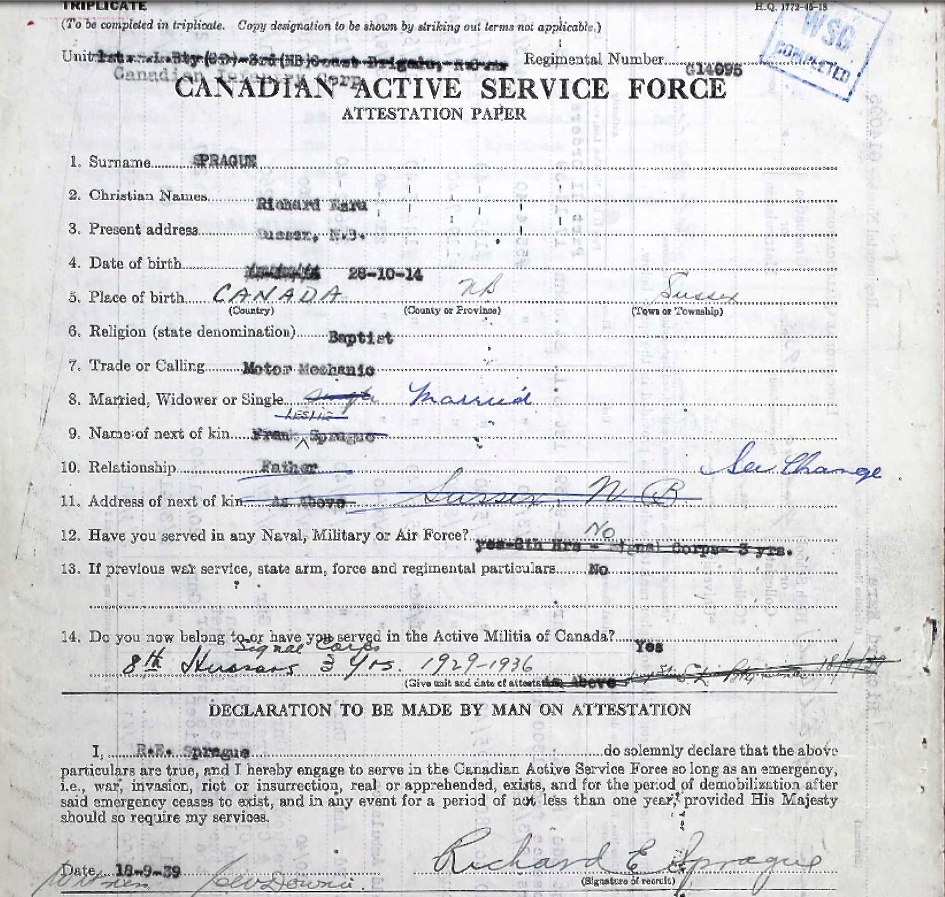 TRIPLICATE H.Q. 1772-45-18
(To be completed in triplicate. Copy designation to be shown by striking out terms not applicable.)
WSG
COMPLETED
Unit 1st. Bty (SD)-3rd(NB)Coast Brigade, Regimental Number G14095
Canadian Corp
CANADIAN ACTIVE SERVICE FORCE
ATTESTATION PAPER
1. Surname SPRAGUE
2. Christian Names Richard
3. Present address Sussex, N.B.
4. Date of birth 28-10-14
5. Place of birth CANADA NB Sussex
(County) (County or Province) (Town or Township)
6. Religion (state denomination) Baptist
7. Trade or Calling Motor Mechanic
8. Married, Widower or Single Single Married
LESLIE
9. Name of next of kin Frank Sprague
10. Relationship Father See Change
11. Address of next of kin As Above Sussex N B
12. Have you served in any Naval, Military or Air Force? No
yes-8th Hrs - Signal Corps- 3 yrs.
13. If previous war service, state arm, force and regimental particulars No
14. Do you now belong to or have you served in the Active Militia of Canada? Yes
Signal Corps
8th Hussars 3 Yrs. 1929-1936
(Give unit and date of attestation As Above
DECLARATION TO BE MADE BY MAN ON ATTESTATION
I, R.E. Sprague do solemnly declare that the above
particulars are true, and I hereby engage to serve in the Canadian Active Service Force so long as an emergency,
i.e., war, invasion, riot or insurrection, real or apprehended, exists, and for the period of demobilization after
said emergency ceases to exist, and in any event for a period of not less than one year, provided His Majesty
should so require my services.
Date 18-9-39 Richard E Sprague
(Signature of recruit)
Witness